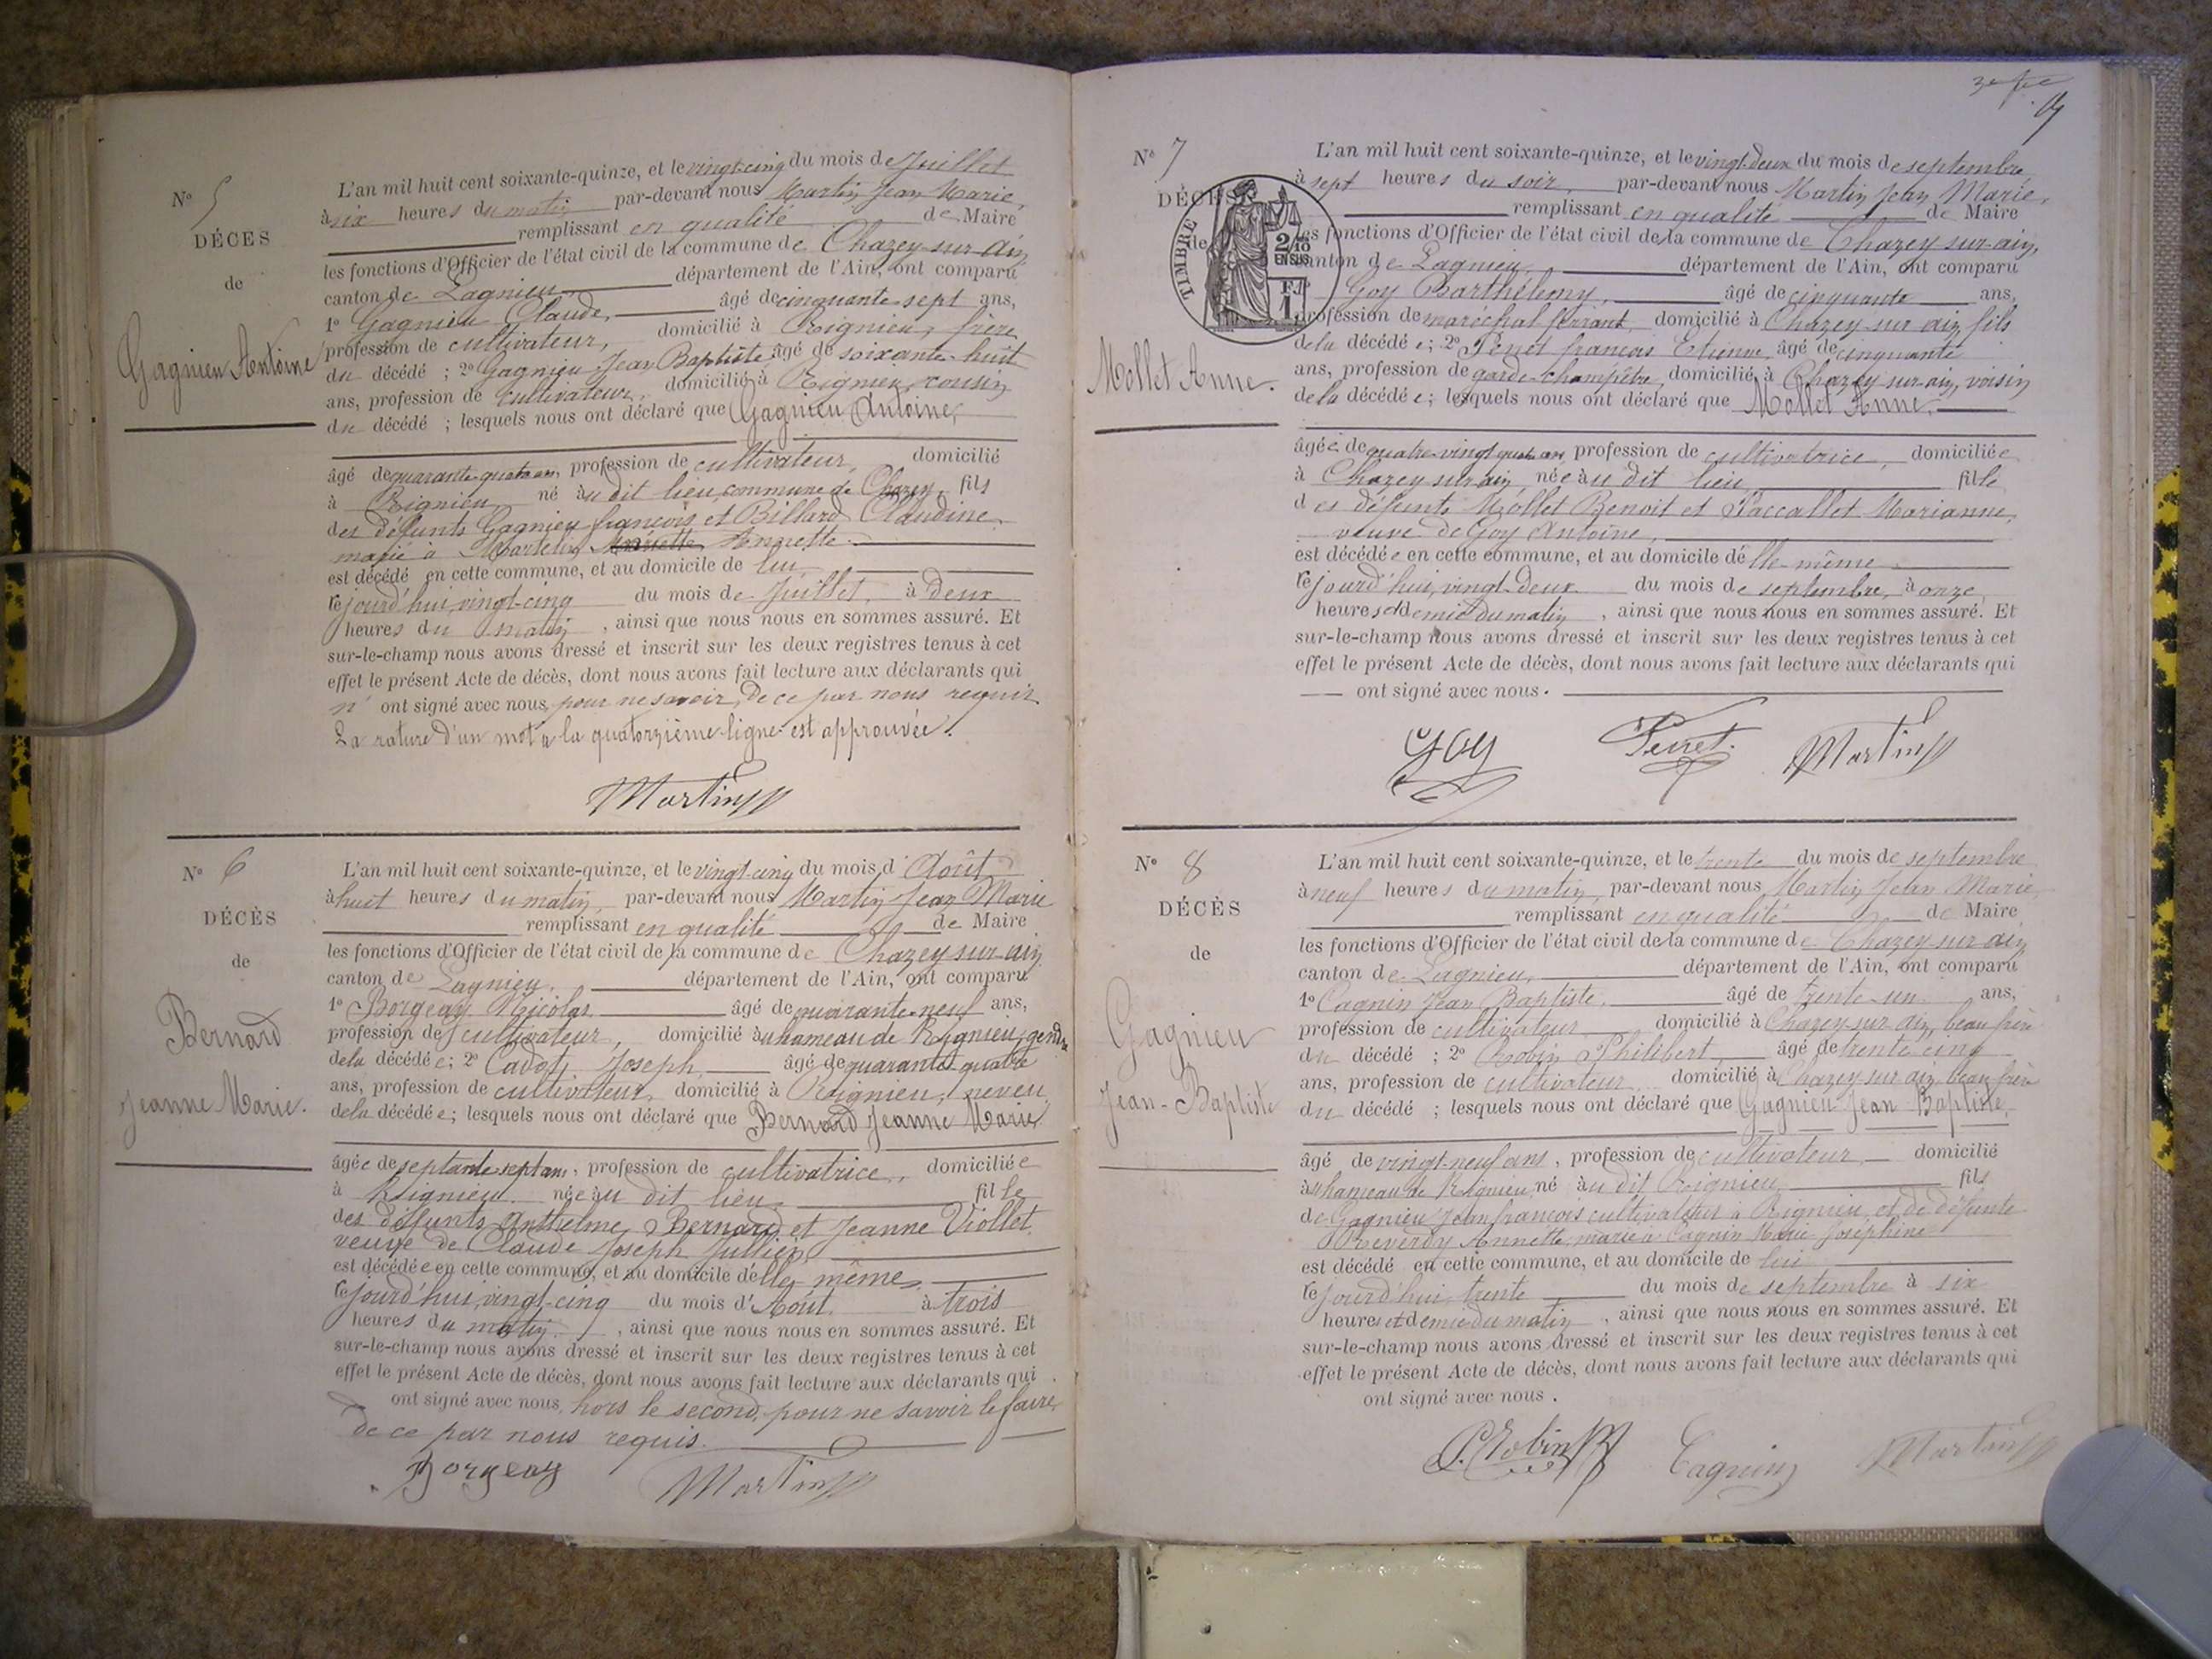 N° 5
DÉCES
de
Gagnieu Antoine
L'an mil huit cent soixante-quinze, et le vingt-cinq du mois de Juillet
à six heures du matin par-devant nous Martin Jean Marie,
remplissant en qualité de Maire
les fonctions d'Officier de l'état civil de la commune de Chazey-sur-Ain
canton de Lagnieu département de l'Ain, ont comparu
1° Gagnieu Claude, âgé de cinquante-sept ans,
profession de cultivateur, domicilié à Rignieu, frère
du décédé ; 2° Gagnieu Jean Baptiste âgé de soixante-huit
ans, profession de cultivateur, domicilié à Rignieu, cousin
du décédé ; lesquels nous ont déclaré que Gagnieu Antoine,
âgé de quarante quatre ans, profession de cultivateur, domicilié
à Rignieu né au dit lieu, commune de Chazey, fils
des défunts Gagnieu françois et Billard Claudine,
marié à Martelin Annette
est décédé en cette commune, et au domicile de lui
cejourd'hui vingt-cinq du mois de Juillet, à deux
heures du matin, ainsi que nous nous en sommes assuré. Et
sur-le-champ nous avons dressé et inscrit sur les deux registres tenus à cet
effet le présent Acte de décès, dont nous avons fait lecture aux déclarants qui
n' ont signé avec nous, pour ne savoir, de ce par nous requis
La rature d'un mot à la quatorzième ligne est approuvée.
Martin
N° 6
DÉCÈS
de
Bernard
Jeanne Marie.
L'an mil huit cent soixante-quinze, et le vingt-cinq du mois d'Août
à huit heures du matin, par-devant nous Martin Jean Marie
remplissant en qualité de Maire
les fonctions d'Officier de l'état civil de la commune de Chazey-sur-ain
canton de Lagnieu, département de l'Ain, ont comparu
1° Borgeay Nicolas âgé de quarante-neuf ans,
profession de cultivateur, domicilié au hameau de Rignieu, gendre
de la décédée; 2° Cadot Joseph, âgé de quarante-quatre
ans, profession de cultivateur, domicilié à Rignieu, neveu
de la décédée; lesquels nous ont déclaré que Bernard Jeanne Marie
âgée de septante-sept ans, profession de cultivatrice, domiciliée
à Rignieu née au dit lieu, fille
des défunts Anthelme Bernard et Jeanne Viollet,
veuve de Claude Joseph Jullien,
est décédée en cette commune, et au domicile d'elle même,
cejourd'hui, vingt-cinq du mois d'Août à trois
heures du matin, ainsi que nous nous en sommes assuré. Et
sur-le-champ nous avons dressé et inscrit sur les deux registres tenus à cet
effet le présent Acte de décès, dont nous avons fait lecture aux déclarants qui
ont signé avec nous, hors le second, pour ne savoir le faire,
de ce par nous requis.
Borgeay Martin
N° 7
DÉCES
de
Mollet Anne.
TIMBRE
2/10
EN SUS
1 F.
L'an mil huit cent soixante-quinze, et le vingt-deux du mois de septembre
à sept heures du soir, par-devant nous Martin Jean Marie,
remplissant en qualité de Maire
les fonctions d'Officier de l'état civil de la commune de Chazey-sur-ain,
canton de Lagnieu, département de l'Ain, ont comparu
Goy Barthélemy, âgé de cinquante ans,
profession de maréchal ferrant, domicilié à Chazey sur ain, fils
de la décédée; 2° Perret françois Etienne, âgé de cinquante
ans, profession de garde-champêtre, domicilié à Chazey-sur-ain, voisin
de la décédée; lesquels nous ont déclaré que Mollet Anne,
âgée de quatre-vingt quatre ans, profession de cultivatrice, domiciliée
à Chazey sur ain, née au dit lieu fille
des défunts Mollet Benoit et Paccallet Marianne,
veuve de Goy Antoine,
est décédée en cette commune, et au domicile d'elle-même
cejourd'hui, vingt-deux du mois de septembre, à onze
heures et demie du matin, ainsi que nous nous en sommes assuré. Et
sur-le-champ nous avons dressé et inscrit sur les deux registres tenus à cet
effet le présent Acte de décès, dont nous avons fait lecture aux déclarants qui
ont signé avec nous.
Goy Perret Martin
N° 8
DÉCÈS
de
Gagnieu
Jean-Baptiste
L'an mil huit cent soixante-quinze, et le trente du mois de septembre
à neuf heures du matin, par-devant nous Martin Jean Marie,
remplissant en qualité de Maire
les fonctions d'Officier de l'état civil de la commune de Chazey-sur-ain
canton de Lagnieu, département de l'Ain, ont comparu
1° Cagnin Jean Baptiste, âgé de trente-un ans,
profession de cultivateur domicilié à Chazey sur ain, beau frère
du décédé ; 2° Robin Philibert âgé de trente cinq
ans, profession de cultivateur domicilié à Chazey sur ain beau frère
du décédé ; lesquels nous ont déclaré que Gagnieu Jean Baptiste,
âgé de vingt-neuf ans, profession de cultivateur domicilié
au hameau de Rignieu, né au dit Rignieu, fils
de Gagnieu Jean françois cultivateur à Rignieu, et de défunte
Reverdy Annette, marié à Cagnin Marie Joséphine
est décédé en cette commune, et au domicile de lui
cejourd'hui trente du mois de septembre à six
heures et demie du matin, ainsi que nous nous en sommes assuré. Et
sur-le-champ nous avons dressé et inscrit sur les deux registres tenus à cet
effet le présent Acte de décès, dont nous avons fait lecture aux déclarants qui
ont signé avec nous.
P. Robin Cagnin Martin